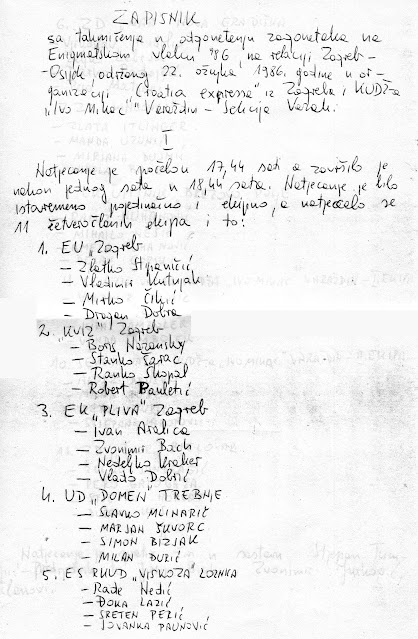 ZAPISNIK
sa takmičenja u odgonetanju zagonetaka na
Enigmatskom vlaku '86 na relaciji Zagreb -
Osijek, održanog 22. ožujka 1986. godine u or-
ganizaciji "Croatia expressa" iz Zagreba i KUDŽ-a
"Ivo Mikac" Varaždin - Sekcija
I
Natjecanje je počelo u 17,44 sati a završilo je
nakon jednog sata u 18,44 sata. Natjecanje je bilo
istovremeno pojedinačno i ekipno, a natjecalo se
11 četveročlanih ekipa i to:
1. EU "Zagreb
- Zlatko
- Vladimir Kutnjak
- Mirko
- Dragan Dobra
2. "KVIZ" Zagreb
- Boris Nazansky
- Stanko Šarac
- Ranko Skopal
- Robert Pauletić
3. EK "PLIVA" Zagreb
- Ivan Aralica
- Zvonimir Bach
- Nedeljko Kraker
- Vlado Dobrić
4. UD "DOMEN" TREBNJE
- SLAVKO MLINARIČ
- MARJAN ŠKVORC
- SIMON BIZJAK
- MILAN ĐURIĆ
5. ES RKUD "VISKOZA" LOZNKA
- Rade Nedić
- ĐOKA LAZIĆ
- SRETEN PERIĆ
- JOVANKA PAUNOVIĆ